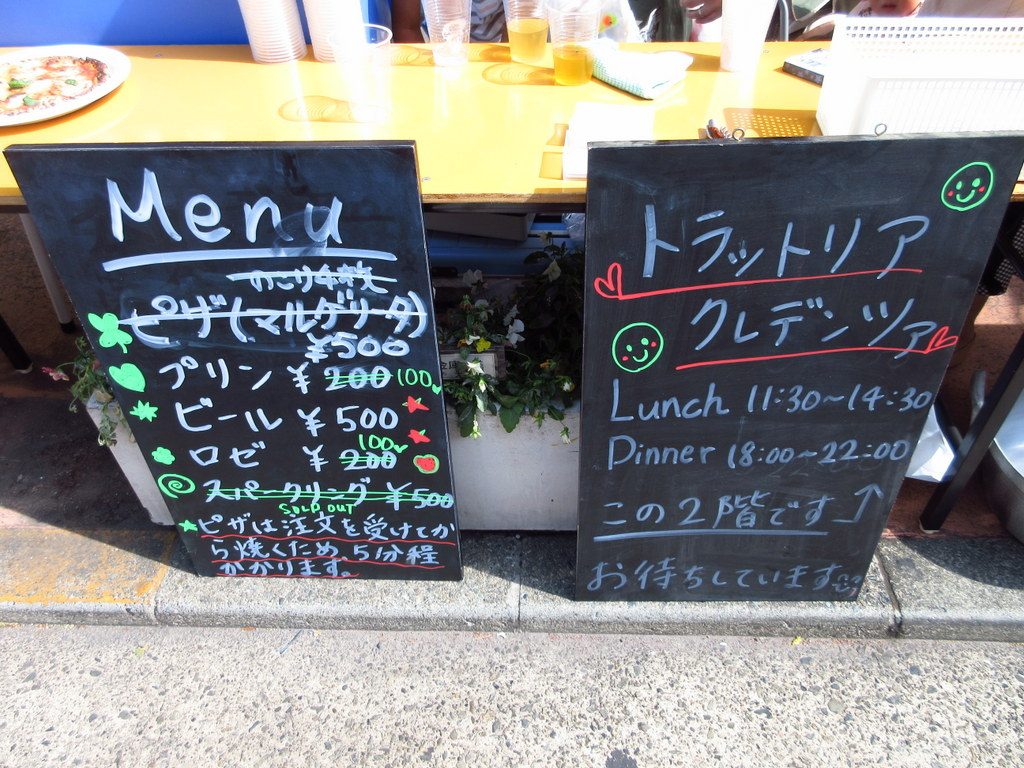 Menu
のこり4枚
ピザ(マルゲリータ)
¥500
プリン ¥200 100
ビール ¥500
100
ロゼ ¥200
スパークリング ¥500
SOLD OUT
ピザは注文を受けてか
ら焼くため、5分程
かかります。
トラットリア
クレデンツァ
Lunch 11:30~14:30
Dinner 18:00~22:00
この2階です↑
お待ちしています